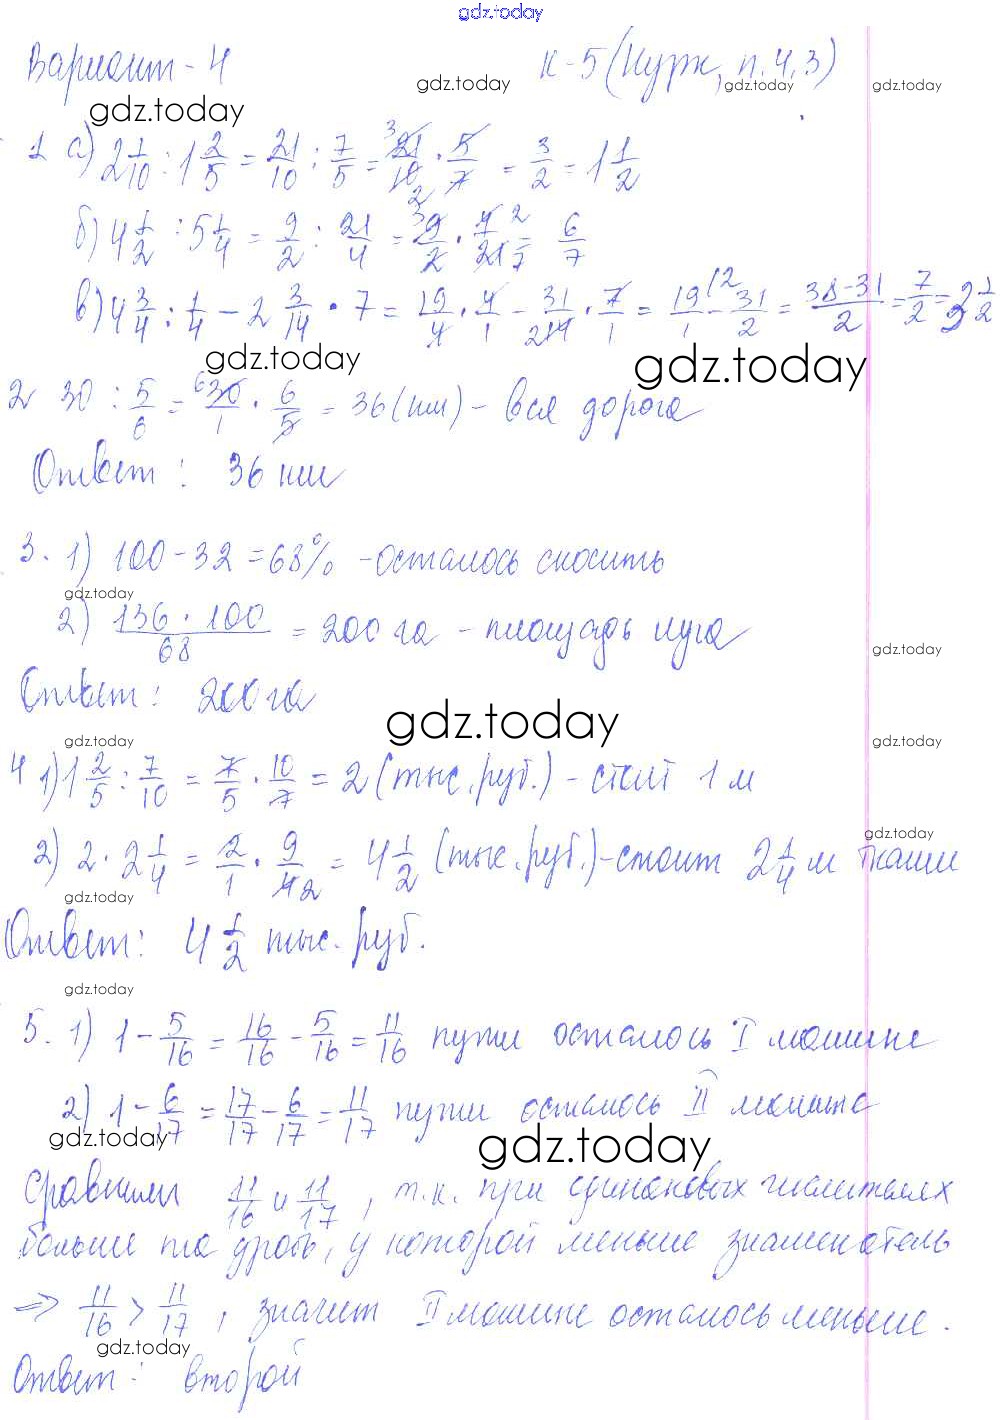 gdz.today
Вариант-4 К-5 (Нурк, п.4,3)
gdz.today gdz.today gdz.today gdz.today
1 а) 2 1/10 : 1 2/5 = 21/10 : 7/5 = 21/10 · 5/7 = 3/2 = 1 1/2
б) 4 1/2 : 5 1/4 = 9/2 : 21/4 = 9/2 · 4/21 = 6/7
в) 4 3/4 : 1/4 - 2 3/14 · 7 = 19/4 · 4/1 - 31/14 · 7/1 = 19/1 - 31/2 = 38-31/2 = 7/2 = 3 1/2
gdz.today gdz.today
2 30 : 5/6 = 30/1 · 6/5 = 36 (км) - вся дорога
Ответ: 36 км
3. 1) 100 - 32 = 68% - осталось скосить
gdz.today
2) 136 · 100/68 = 200 га - площадь луга
gdz.today
Ответ: 200 га
gdz.today
gdz.today gdz.today
4 1) 1 2/5 : 7/10 = 7/5 · 10/7 = 2 (тыс. руб.) - стоит 1 м
gdz.today
2) 2 · 2 1/4 = 2/1 · 9/4 = 4 1/2 (тыс. руб.) - стоит 2 1/4 м ткани
gdz.today
Ответ: 4 1/2 тыс. руб.
gdz.today
5. 1) 1 - 5/16 = 16/16 - 5/16 = 11/16 пути осталось I машине
2) 1 - 6/17 = 17/17 - 6/17 = 11/17 пути осталось II машине
gdz.today gdz.today
Сравним 11/16 и 11/17, т.к. при одинаковых числителях
больше та дробь, у которой меньше знаменатель
=> 11/16 > 11/17, значит II машине осталось меньше.
gdz.today
Ответ: второй